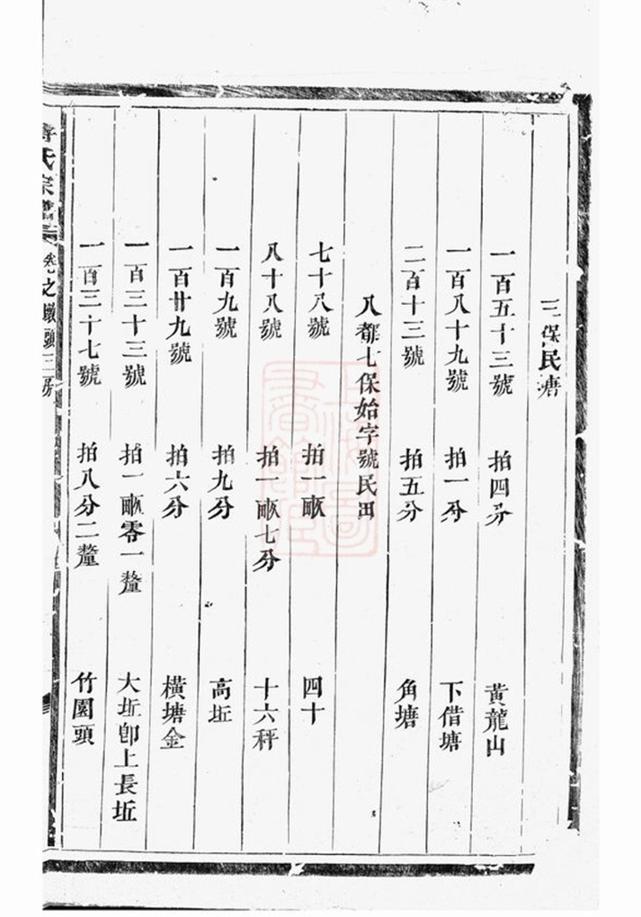 三保民塘
一百五十三號 拍四分 黃龍山
一百八十九號 拍一分 下借塘
二百十三號 拍五分 角塘
八都七保始字號民田
七十八號 拍一畝 四十
八十八號 拍一畝七分 十六秤
一百九號 拍九分 高坵
一百廿九號 拍六分 橫塘金
一百三十三號 拍一畝零一釐 大坵卽上長坵
一百三十七號 拍八分二釐 竹園頭
氏宗譜 卷 之墩頭三房